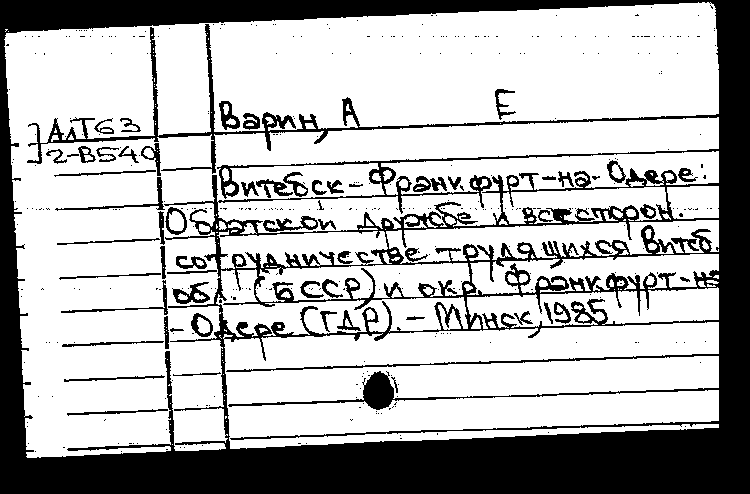 АлТ63
2-В540
Варин, А Е
Витебск-Франкфурт-на-Одере:
О братской дружбе и всесторон.
сотрудничестве трудящихся Витеб.
обл. (БССР) и окр. Франкфурт-на
-Одере (ГДР). - Минск, 1985.